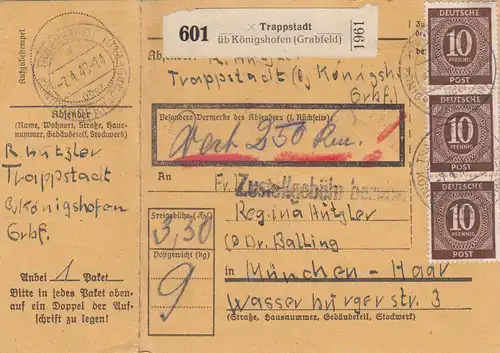 Aufgabestempel
Absender
(Name, Wohnort, Straße, Haus-
nummer, Gebäudeteil, Stockwerk)
R. Hutzler
Trappstadt
b/Königshofen
Grbf.
Anbei 1 Paket
Bitte in jedes Paket oben-
auf ein Doppel der Auf-
schrift zu legen!
601
Trappstadt
üb Königshofen (Grabfeld)
1961
Absender:
R. Hutzler
Trappstadt b/Königsh.
Grbf.
Besondere Vermerke des Absenders (s. Rückseite)
Wert 250 Rm.
An
Fr.
Zustellgebühr bezahlt
Freigebühr
3,30
Postgewicht (kg)
9
Regina Hutzler
Dr. Balling
in München - Haar
Wasserburgerstr. 3
(Straße, Hausnummer, Gebäudeteil, Stockwerk)
DEUTSCHE
10
PFENNIG
POST
DEUTSCHE
10
PFENNIG
POST
DEUTSCHE
10
PFENNIG
POST